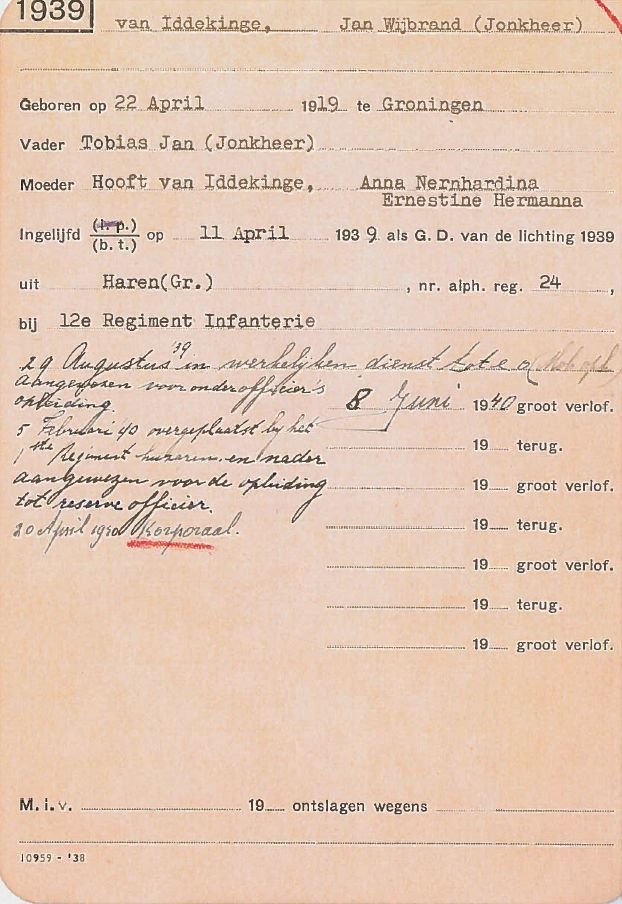 1939
van Iddekinge, Jan Wijbrand (Jonkheer)
Geboren op 22 April 1919 te Groningen
Vader Tobias Jan (Jonkheer)
Moeder Hooft van Iddekinge, Anna Nernhardina
Ernestine Hermanna
Ingelijfd (b. t.) op 11 April 1939 als G. D. van de lichting 1939
uit Haren(Gr.), nr. alph. reg. 24,
bij 12e Regiment Infanterie
29 Augustus '39 in werkelijken dienst tot e o
aangewezen voor onderofficier's
opleiding.
8 Juni 1940 groot verlof.
5 Februari 40 overgeplaatst bij het
1ste Regiment huzaren en nader
19 terug.
aangewezen voor de opleiding
19 groot verlof.
tot reserve officier.
20 April 1940 Korporaal.
19 terug.
19 groot verlof.
19 terug.
19 groot verlof.
M. i. v. 19 ontslagen wegens
10959 - '38